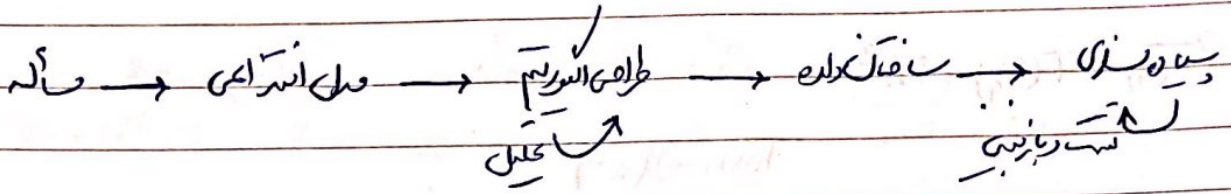 مسأله → مدل انتزاعی → طراحی الگوریتم → ساختمان داده → پیاده سازی
تحلیل تست و بازبینی